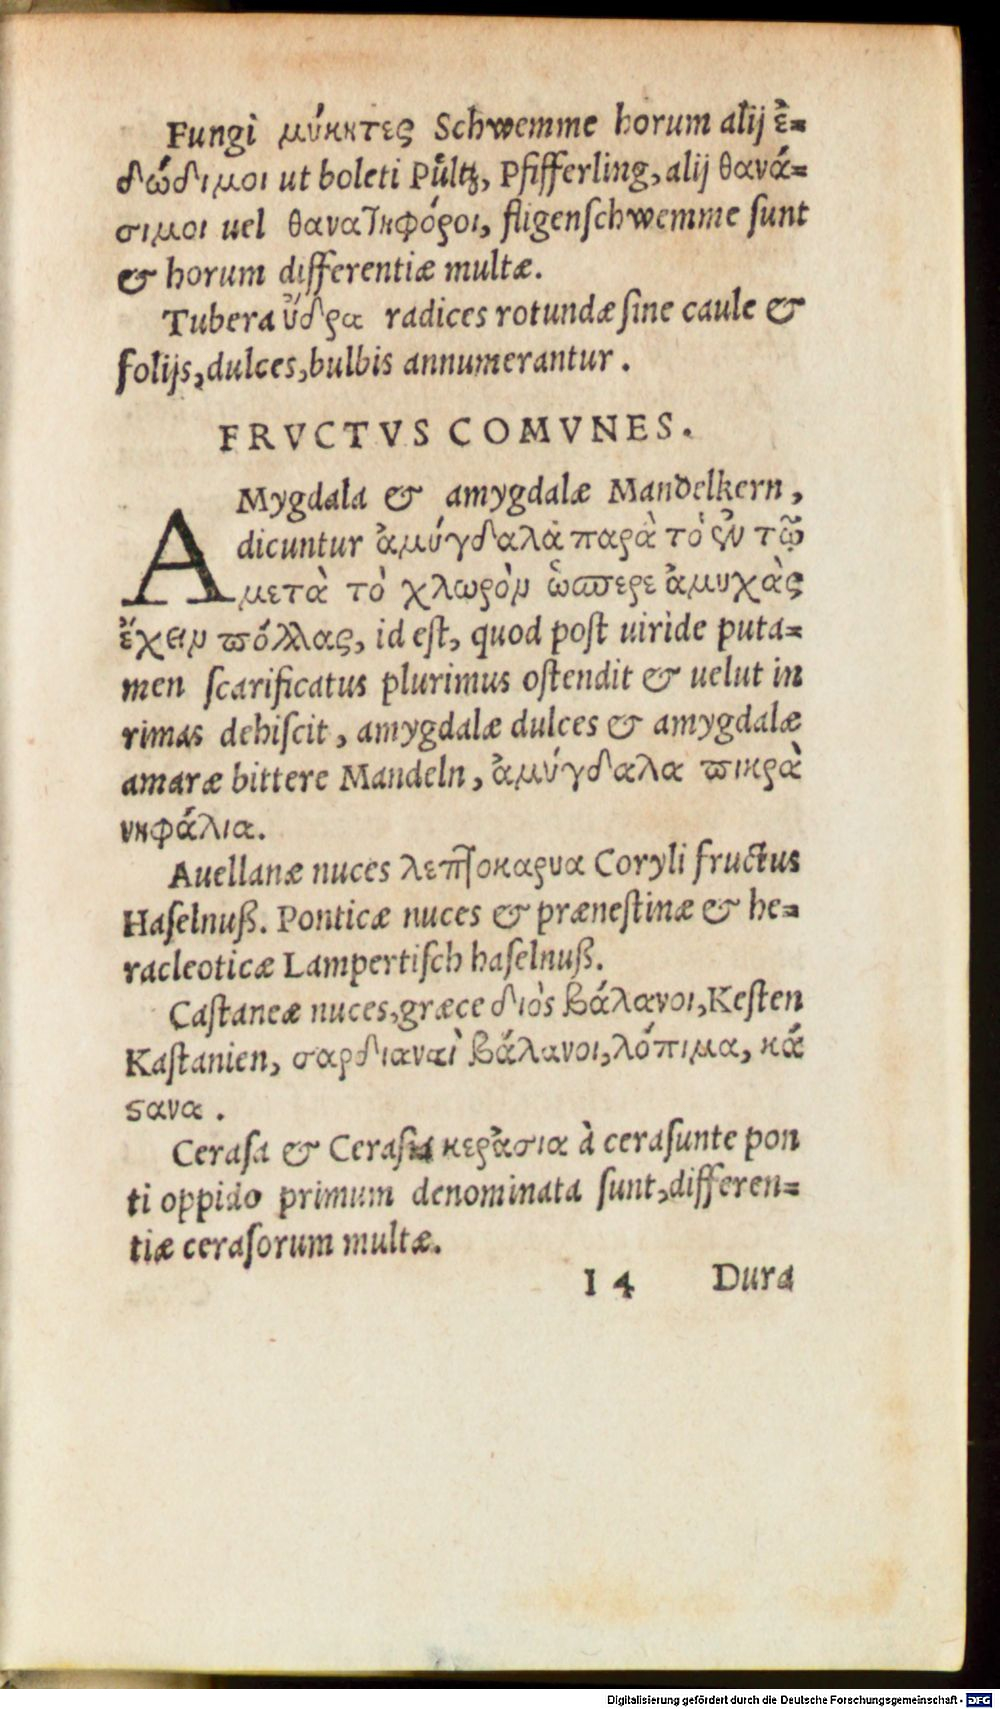 Fungi μύκητες Schwemme horum alij ἐ-
δώδιμοι ut boleti Půltz, Pfifferling, alij θανά-
σιμοι uel θανατηφόροι, fligenſchwemme ſunt
& horum differentiæ multæ.
Tubera ὕδρα radices rotundæ ſine caule &
folijs, dulces, bulbis annumerantur.
FRVCTVS COMVNES.
AMygdala & amygdalæ Mandelkern,
dicuntur ἀμύγδαλὰ παρὰ τὸ ἐν τῷ
μετὰ τὸ χλωρὸν ὥσπερε ἀμυχὰς
ἔχειν πόλλας, id eſt, quod poſt uiride puta-
men ſcarificatus plurimus oſtendit & uelut in
rimas dehiſcit, amygdalæ dulces & amygdalæ
amaræ bittere Mandeln, ἀμύγδαλα πικρὰ
νηφάλια.
Auellanæ nuces λεπτοκαρυα Coryli fructus
Haſelnuß. Ponticæ nuces & præneſtinæ & he-
racleoticæ Lampertiſch haſelnuß.
Caſtaneæ nuces, græce διὸς βάλανοι, Keſten
Kaſtanien, σαρδιαναὶ βάλανοι, λόπιμα, κά
ϛανα.
Ceraſa & Ceraſia κεράσια à ceraſunte pon
ti oppido primum denominata ſunt, differen-
tiæ ceraſorum multæ.
I 4 Dura
Digitalisierung gefördert durch die Deutsche Forschungsgemeinschaft - DFG